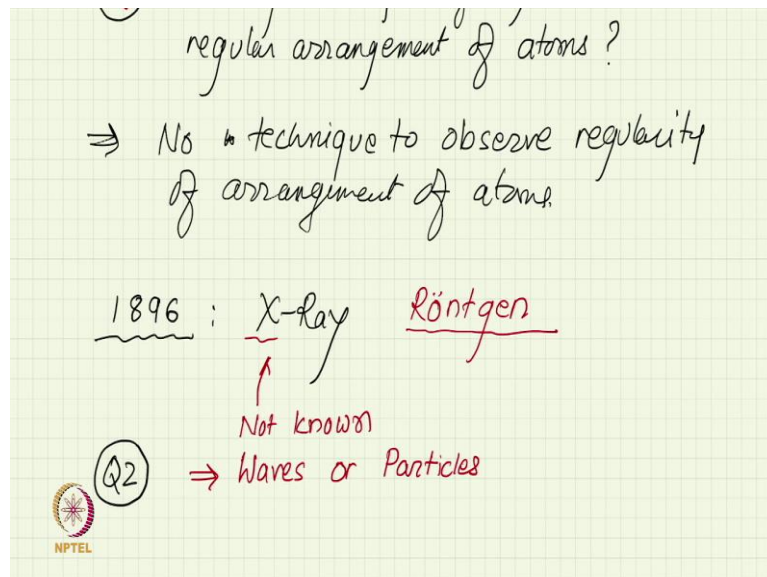 regular arrangement of atoms ?
⇒ No technique to observe regularity
of arrangement of atoms.
1896 : X-Ray Röntgen
Not known
Q2 ⇒ Waves or Particles
NPTEL